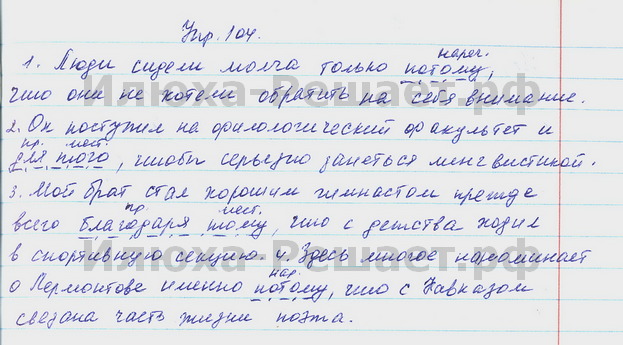 Упр. 104.
нареч.
1. Люди сидели молча только потому,
что они не хотели обратить на себя внимание.
2. Он поступил на филологический факультет и
пр. мест.
для того, чтобы серьезно заняться лингвистикой.
3. Мой брат стал хорошим гимнастом прежде
пр. мест.
всего благодаря тому, что с детства ходил
в спортивную секцию. 4. Здесь многое напоминает
нар.
о Лермонтове именно потому, что с Кавказом
связана часть жизни поэта.
Илюха-Решает.рф
Илюха-Решает.рф